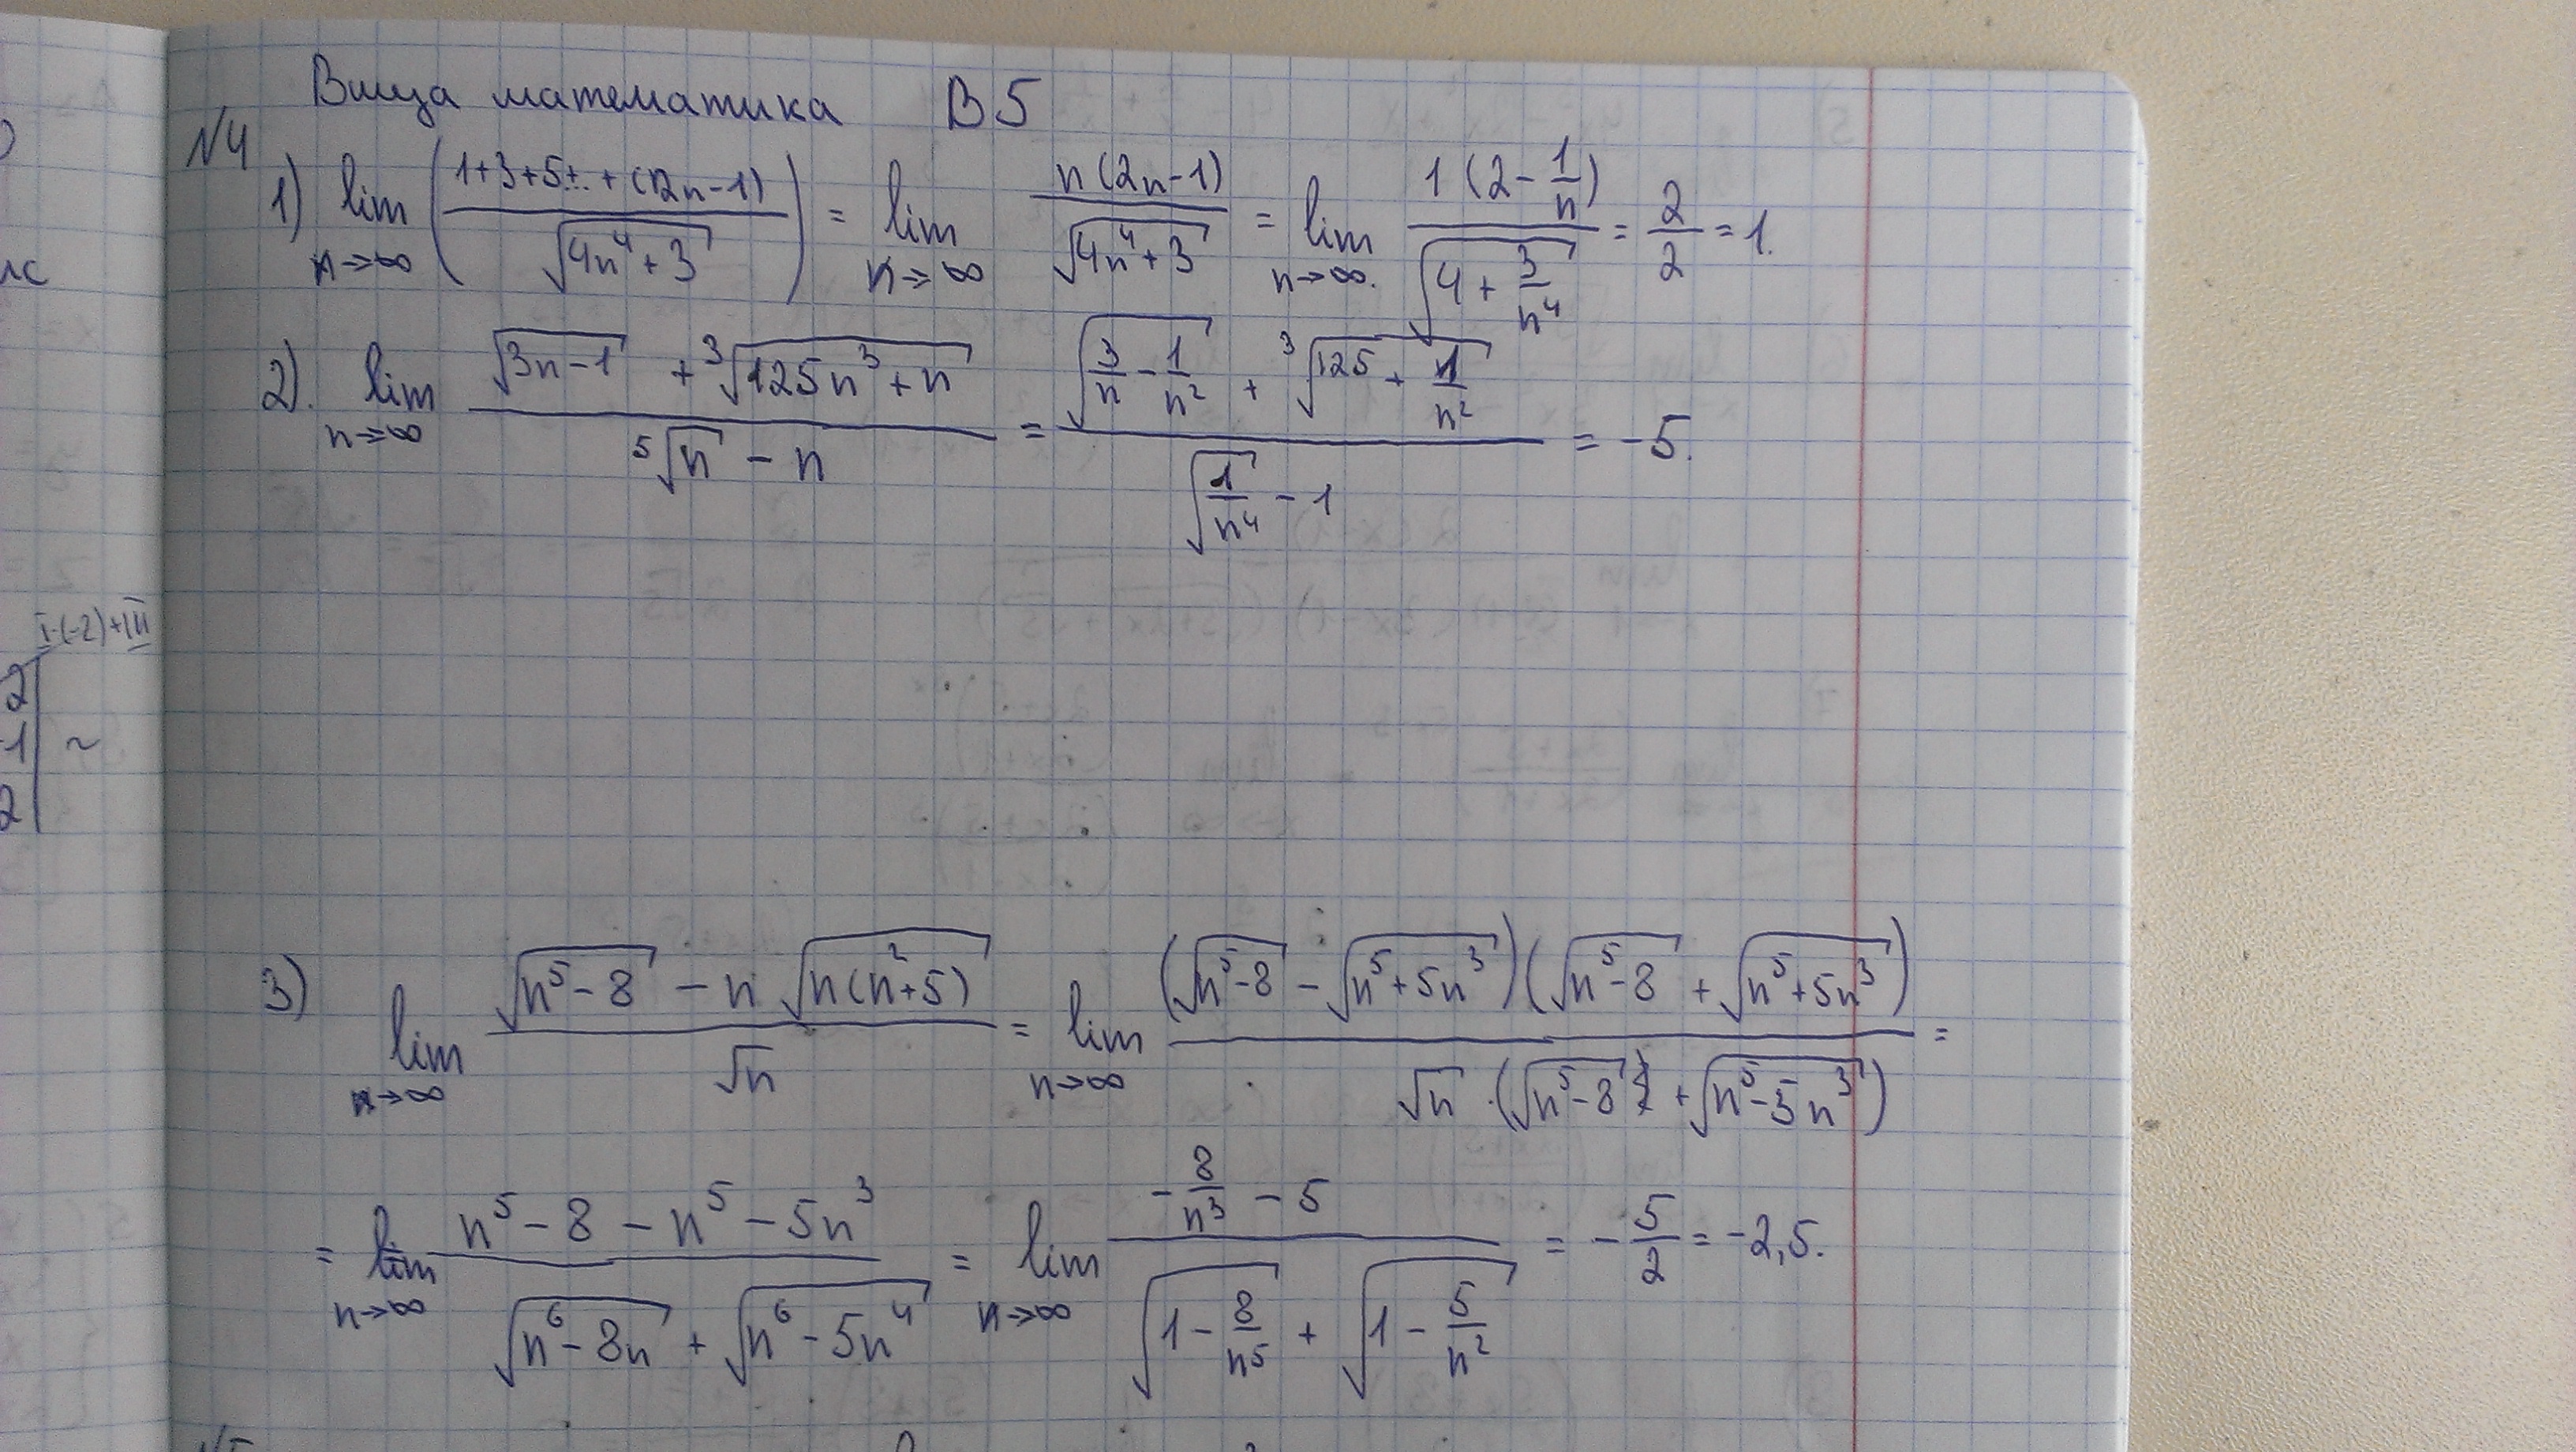 Вища математика В5
№4
1) lim n→∞ ((1+3+5+..+(2n-1))/√(4n⁴+3)) = lim n→∞ n(2n-1)/√(4n⁴+3) = lim n→∞. 1(2-1/n)/√(4+3/n⁴) = 2/2 = 1.
2). lim n→∞ (√(3n-1) + ³√(125n³+n))/(⁵√n - n) = (√(3/n - 1/n²) + ³√(125 + 1/n²))/(√(1/n⁴) - 1) = -5.
I·(-2)+III
2
-1 ~
2
3) lim n→∞ (√(n⁵-8) - n√(n(n²+5)))/√n = lim n→∞ (√(n⁵-8) - √(n⁵+5n³))(√(n⁵-8) + √(n⁵+5n³))/(√n·(√(n⁵-8) + √(n⁵-5n³))) =
= lim n→∞ (n⁵-8-n⁵-5n³)/(√(n⁶-8n) + √(n⁶-5n⁴)) = lim n→∞ (-8/n³ - 5)/(√(1-8/n⁵) + √(1-5/n²)) = -5/2 = -2,5.